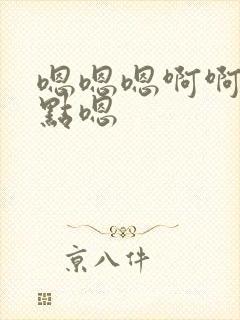 嗯嗯嗯啊啊
點嗯
京八件